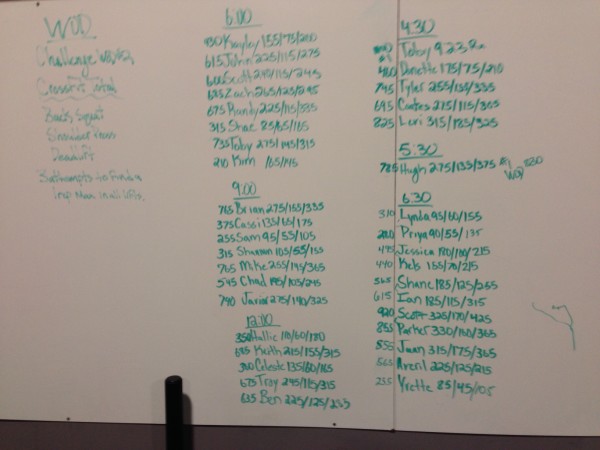 WOD
Challenge WB#2
Crossfit Total
Back Squat
Shoulder Press
Deadlift
3 attempts to Find a
1 rep Max in all lifts.
6:00
Kayley 155/75/200
615 John 225/115/275
Scott 245/115/245
Zach 265/125/295
675 Randy 225/115/335
315 Shae 85/65/165
735 Toby 275/145/315
210 Kim 65/145
9:00
765 Brian 275/155/335
375 Cassi 135/65/175
255 Sam 95/55/105
315 Shannon 105/55/155
705 Mike 255/145/305
545 Chad 195/105/245
740 Javier 275/140/325
12:00
350 Hallie 110/60/180
685 Keith 215/155/315
Celeste 135/60/165
675 Troy 245/115/315
635 Ben 225/125/
4:30
Toby 9:23 Rx
Danette 175/75/210
745 Tyler 255/135/355
695 Coates 275/115/305
825 Lori 315/185/325
5:30
785 Hugh 275/135/375 #1 WOD
6:30
310 Lynda 95/60/155
Priya 90/55/135
Jessica 180/100/215
440 Keb 155/70/215
565 Shane 185/125/255
615 Ian 185/115/315
920 Scott 325/170/425
855 Parker 330/160/365
855 Juan 315/175/365
565 Averil 225/125/215
235 Yvette 85/45/105